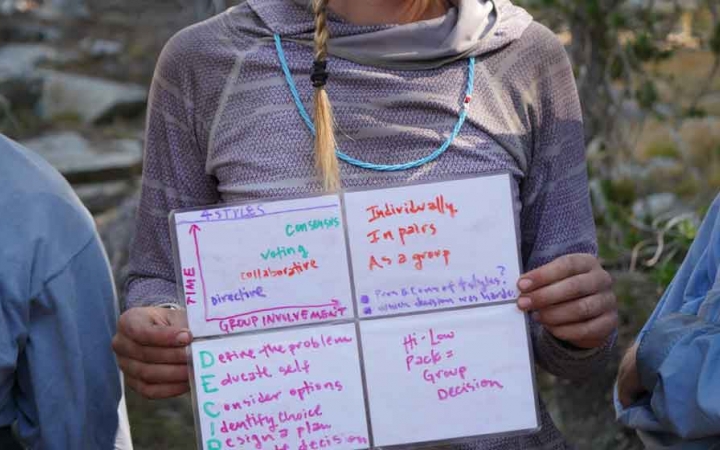 4 STYLES
Consensus
Voting
Collaborative
Directive
TIME
GROUP INVOLVEMENT
Individually
In pairs
As a group
Pros & Cons of 4 styles?
which decision was harder
Define the problem
Educate self
Consider options
Identify choice
Design a plan
decision
Hi-Low
Pack =
Group
Decision